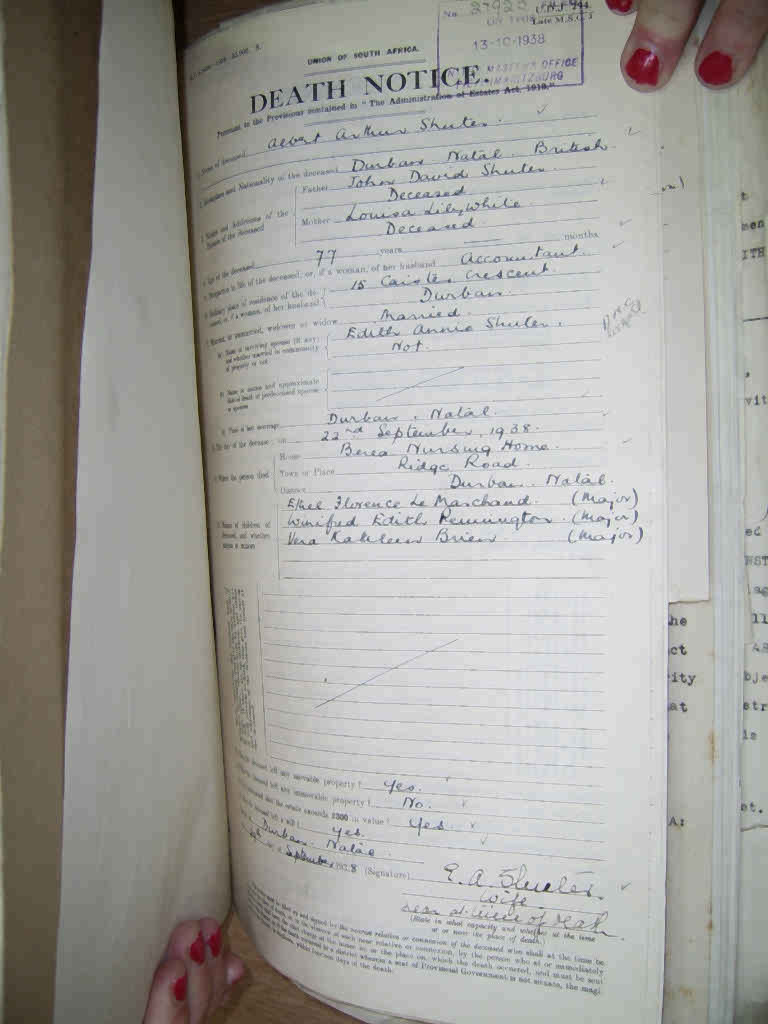 No. 27925
U.D.J. 244.
Late M.S.C. 5
UNION OF SOUTH AFRICA.
13-10-1938
MASTER'S OFFICE
DEATH NOTICE.
Pursuant to the Provisions contained in "The Administration of Estates Act, 1913."
Name of deceased Albert Arthur Shuter.
Birthplace and Nationality of the deceased Durban Natal. British.
Names and Addresses of the Parents of the deceased
Father John David Shuter.
Deceased
Mother Louisa Lilywhite.
Deceased
Age of the deceased 77 years months
Occupation in life of the deceased, or, if a woman, of her husband Accountant.
Ordinary place of residence of the deceased, or, if a woman, of her husband
15 Caister Crescent.
Durban.
Married or unmarried, widower or widow Married.
Name of surviving spouse (if any) and whether married in community of property or not
Edith Annie Shuter.
Not.
Name or names and approximate date of death of predeceased spouse or spouses
Place of last marriage Durban, Natal.
The day of the decease on 22nd September, 1938.
Where the person died
House Berea Nursing Home.
Town or Place Ridge Road.
District Durban. Natal.
Names of children of deceased, and whether majors or minors
Ethel Florence Le Marchand. (Major)
Winifred Edith Pennington. (Major)
Vera Kathleen Brien (Major)
deceased left any movable property? Yes.
deceased left any immovable property? No.
estate exceeds £300 in value? Yes.
deceased left a will? Yes.
Durban. Natal
September 1938 (Signature) E. A. Shuter.
Wife.
near at time of death.
(State in what capacity and whether at the time
of or near the place of death.)